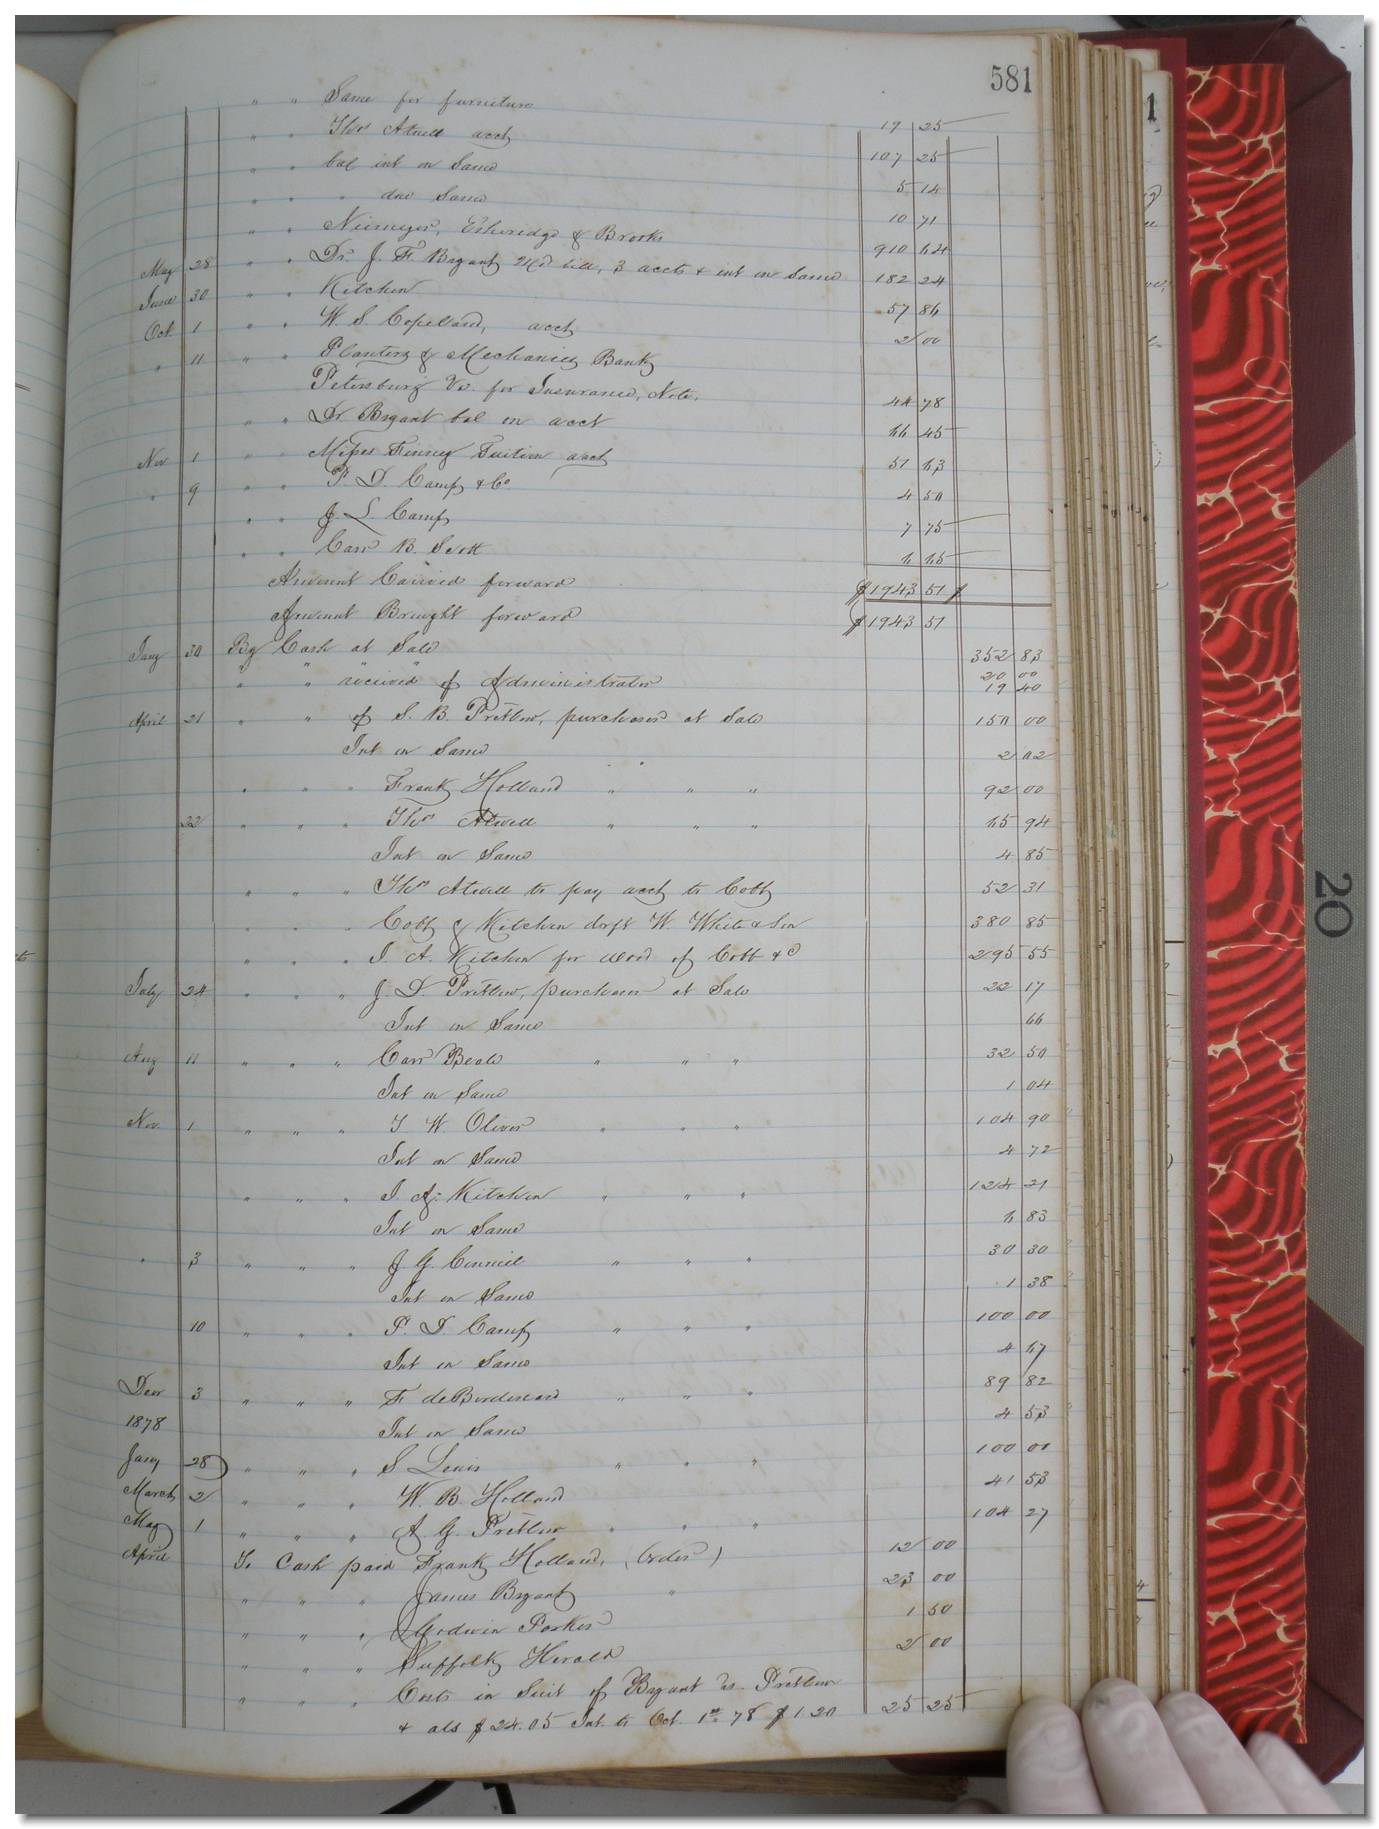 581
" " Same for furniture 19 25
" " Thos Atwell acct 107 25
" " bal int on Same 5 14
" " " due Same 10 71
" " Niemeyer, Etheridge & Brooks 910 64
May 28 " " Dr J. F. Bryant Md bill, 3 accts & int on Same 182 24
June 30 " " Kitchen 57 86
Oct 1 " " W. S. Copeland, acct 2 00
" 11 " " Planters & Mechanics Bank
Petersburg Va. for Insurance, Note. 44 78
" Dr Bryant bal on acct 66 45
Nov 1 " " Misses Finney Tuition acct 51 63
" 9 " " P. D. Camp & Co 4 50
" " J. L. Camp 7 75
" " Carr B. Scott 6 65
Amount Carried forward $1943 51
Amount Brought forward $1943 51
Jany 30 By Cash at Sale 352 83
" " " " 20 00
" " received of Administrator 19 40
April 21 " " of S. B. Pretlow, purchases at Sale 150 00
Int on Same 2 02
" " " Frank Holland " " " 92 00
22 " " " Thos Atwell " " " 65 94
Int on Same 4 85
" " " Thos Atwell to pay acct to Cobb 52 31
" " " Cobb & Kitchen drft W. White & Son 380 85
" " " I. A. Kitchen for wood of Cobb & 295 55
July 24 " " " J. D. Pretlow, purchases at Sale 22 17
Int on Same 66
Aug 11 " " " Carr Beale " " " 32 50
Int on Same 1 04
Nov. 1 " " " T W. Oliver " " " 104 90
Int on Same 4 72
" " " I. A. Kitchen " " " 124 21
Int on Same 6 83
" 3 " " " J G. Council " " " 30 30
Int on Same 1 38
10 " " " P. D. Camp " " " 100 00
Int on Same 4 67
Decr 3 " " " F. deBordenard " " " 89 82
1878 Int on Same 4 53
Jany 28 " " " S Lewis " " " 100 00
March 2 " " " W. B. Holland 41 53
May 1 " " " A. G. Pretlow " " " 104 27
April To Cash paid Frank Holland, (order) 12 00
" " " James Bryant " 23 00
" " " Godwin Parker 1 50
" " " Suffolk Herald 2 00
" " " Costs in Suit of Bryant vs. Pretlow
& als $24.05 Int. to Oct. 1st 78 $1.20 25 25
20